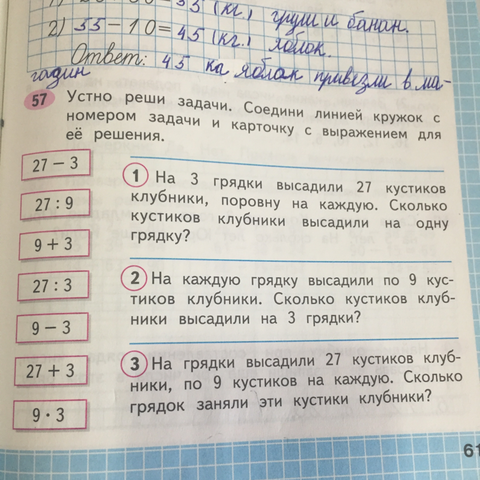 2) 55-10=45 (кг.) яблок.
Ответ: 45 кг яблок привезли в ма-
газин
57 Устно реши задачи. Соедини линией кружок с
номером задачи и карточку с выражением для
её решения.
27 − 3
27 : 9
9 + 3
27 : 3
9 − 3
27 + 3
9 · 3
1 На 3 грядки высадили 27 кустиков
клубники, поровну на каждую. Сколько
кустиков клубники высадили на одну
грядку?
2 На каждую грядку высадили по 9 кус-
тиков клубники. Сколько кустиков клуб-
ники высадили на 3 грядки?
3 На грядки высадили 27 кустиков клуб-
ники, по 9 кустиков на каждую. Сколько
грядок заняли эти кустики клубники?
61